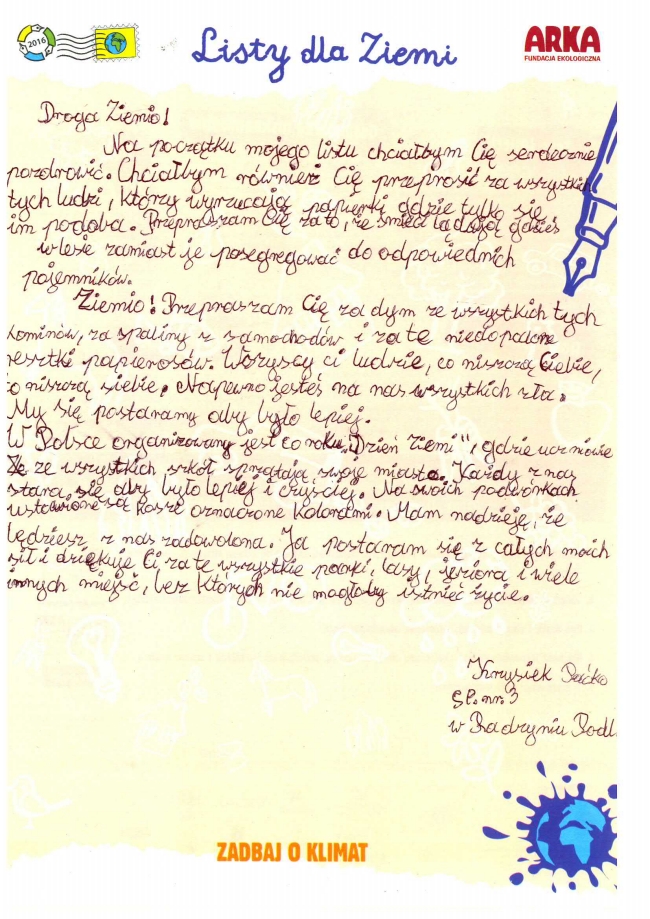 2016
Listy dla Ziemi
ARKA
FUNDACJA EKOLOGICZNA
Droga Ziemio!
Na początku mojego listu chciałbym Cię serdecznie
pozdrowić. Chciałbym również Cię przeprosić za wszystkich
tych ludzi, którzy wyrzucają papierki gdzie tylko się
im podoba. Przepraszam Cię za to, że śmieci lądują gdzieś
w lesie zamiast je posegregować do odpowiednich
pojemników.
Ziemio! Przepraszam Cię za dym ze wszystkich tych
kominów, za spaliny z samochodów i za te niedopalone
resztki papierosów. Wszyscy ci ludzie, co niszczą Ciebie,
co niszczą siebie. Napewno jesteś na nas wszystkich zła.
My się postaramy aby było lepiej.
W Polsce organizowany jest co roku „Dzień Ziemi", gdzie uczniowie
ze wszystkich szkół sprzątają swoje miasta. Każdy z nas
stara się aby było lepiej i czyściej. Na swoich podwórkach
ustawione są kosze oznaczone kolorami. Mam nadzieję, że
będziesz z nas zadowolona. Ja postaram się z całych moich
sił i dziękuję Ci za te wszystkie parki, lasy, jeziora i wiele
innych miejsc, bez których nie mogłoby istnieć życie.
Krzysiek
SP. nr. 3
w Radzyniu Podl.
ZADBAJ O KLIMAT